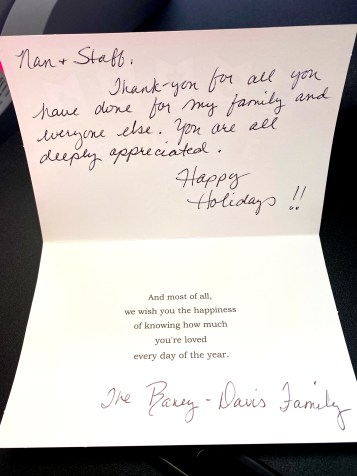 Nan + Staff,
Thank-you for all you
have done for my family and
everyone else. You are all
deeply appreciated.
Happy
Holidays !!
And most of all,
we wish you the happiness
of knowing how much
you're loved
every day of the year.
The Raney-Davis Family